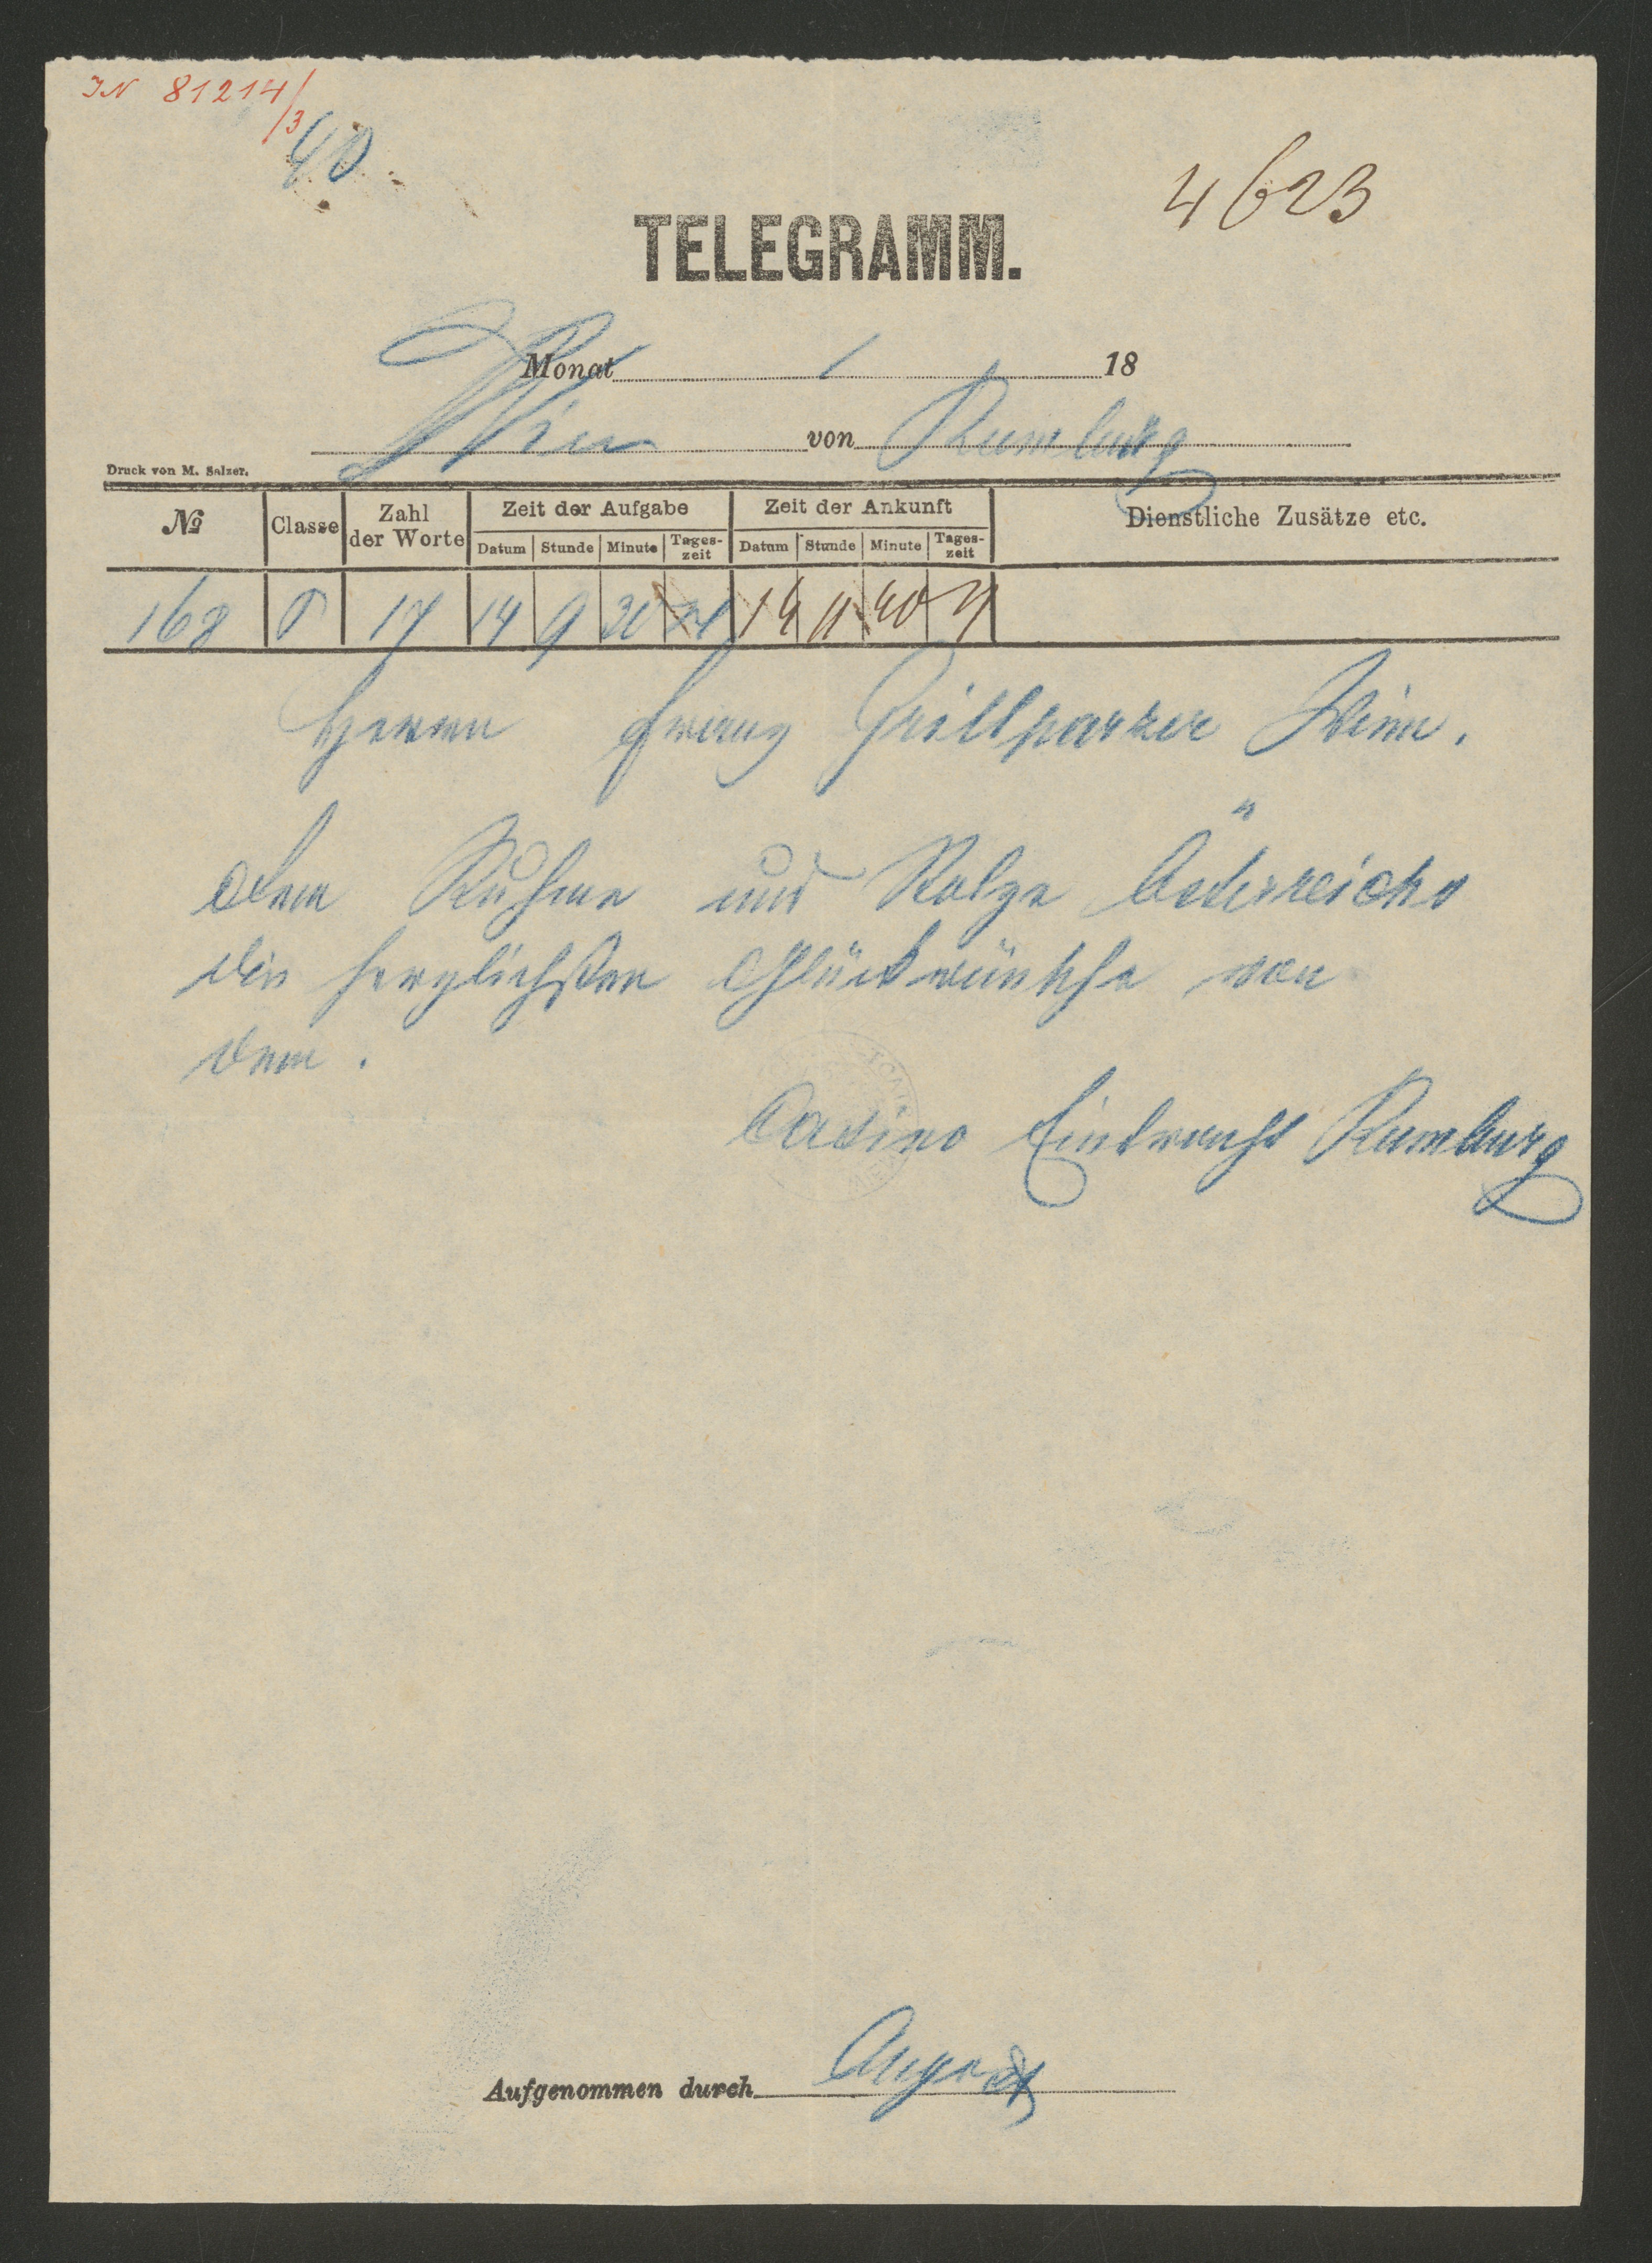 IN 81214/3
40
4623
TELEGRAMM.
Monat 1 18
Wien von Rumburg
Druck von M. Salzer.
№ Classe Zahl der Worte Zeit der Aufgabe Zeit der Ankunft Dienstliche Zusätze etc.
Datum Stunde Minute Tages-zeit Datum Stunde Minute Tages-zeit
168 17 14 9 30 14 11 40
Herrn Franz Grillparzer Wien.
Dem Ruhme und Stolze Österreichs
die herzlichsten Glückwünsche von
dem.
Casino Eintracht Rumburg
Aufgenommen durch